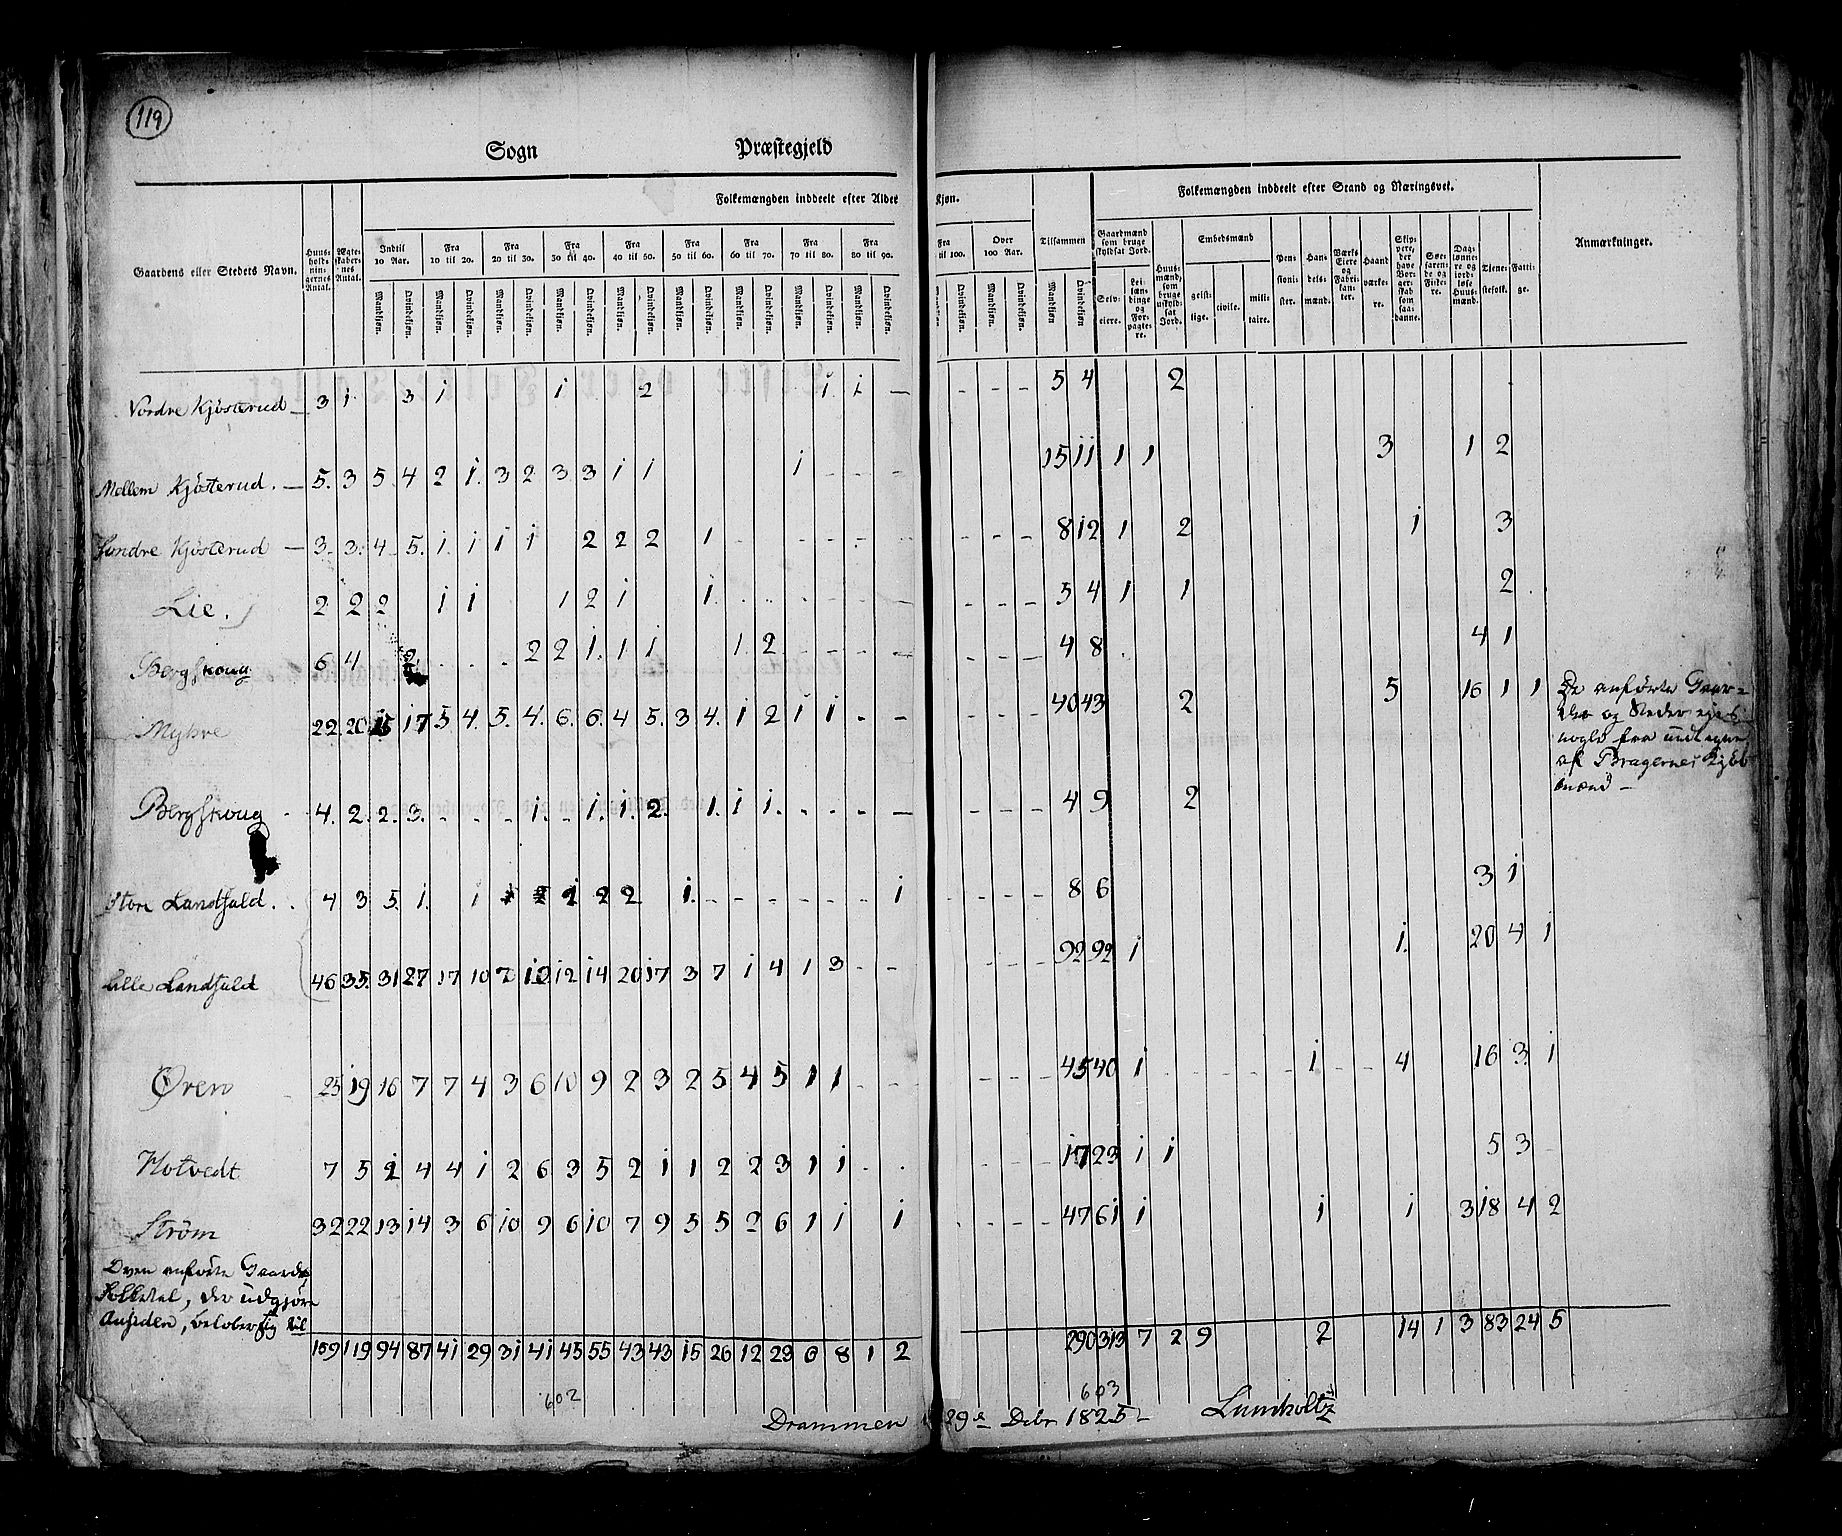 119
Sogn Præstegjeld
Folkemængden inddeelt efter Alder Kjøn. Folkemængden inddeelt efter Stand og Næringsvei.
Gaardens eller Stedets Navn. Huusholdningernes Antal. Ægteskabernes Antal. Indtil 10 Aar. Fra 10 til 20. Fra 20 til 30. Fra 30 til 40. Fra 40 til 50. Fra 50 til 60. Fra 60 til 70. Fra 70 til 80. Fra 80 til 90. Fra til 100. Over 100 Aar. Tilsammen Gaardmænd som bruge skyldsat Jord. Huusmænd, som bruge uskyldsat Jord. Embedsmænd Pensionister. Handelsmænd. Værks Eiere og Fabrikanter. Haandværkere. Skippere, der have Borgerskab som saadanne. Søefarende og Fiskere. Daglønnere og jordløse Huusmænd. Tjenestefolk. Fattige. Anmærkninger.
Mandkjøn. Qvindekjøn. Mandkjøn. Qvindekjøn. Mandkjøn. Qvindekjøn. Mandkjøn. Qvindekjøn. Mandkjøn. Qvindekjøn. Mandkjøn. Qvindekjøn. Mandkjøn. Qvindekjøn. Mandkjøn. Qvindekjøn. Mandkjøn. Qvindekjøn. Mandkjøn. Qvindekjøn. Mandkjøn. Qvindekjøn. Mandkjøn Qvindekjøn Selveiere. Leilændinge og Forpagtere. geistlige. civile. militaire.
Nordre Kjösterud 3 1 3 1 1 2 1 1 5 4 2
Mellem Kjösterud. 5. 3 5 4 2 1. 3 2 3 3 1 1 1 15 11 1 1 3 1 2
Söndre Kjösterud 3. 3. 4 5. 1. 1 1 1 2 2 2 1 8 12 1 2 1 3
Lie. 2 2 2 1 1 1 2 1 1. 5 4 1 1 2
Bergskoug 6 4 2. 2 2 1. 1 1 1. 2 4 8 4 1
Myhre 22. 20 15 17 5 4. 5. 4. 6. 6. 4 5. 3 4. 1 2 1 1 40 43 2 5 16 1 1
De anförte Gaar=
der og Steder ejes
nogle fra undtagne
af Bragernes Kjöb
mænd
Bergskoug 4. 2. 2. 3. 1. 1. 1. 2. 1. 1 1. 4 9 2
Store Landfald. 4 3 5. 1. 1 2 2 2 1. 1 8 6 3 1
Lille Landfald 46 35. 31 27 17 10 7 12 12 14 20 17 3 7 1 4 1 3 92 92 1 1. 20 4 1
Øren 25 19 16 7 7 4 3 6 10 9 2 3 2 5 4 5 1 1 45 40 1 1 4 16 3 1
Hotvedt 7 5 2 4 4 1 2 6 3 5 2 1 1 2 2 3 1 1 17 23 1 1 5 3
Ström 32 22 13 14 3 6 10 9 6 10 7 9 5 5 2 6 1 1 1 47 61 1 1 1 3 18 4 2
Oven anförte Gaardes
Folketal, der udgjöre
Ansiden, belöber sig til
159 119 94 87 41 29 31 41 45 55 43 43 15 26 12 23 6 8 1 2 290 313 7 2 9 2 14 1 3 83 24 5
602 603
Drammen 29de Dcbr 1825 Lumholtz